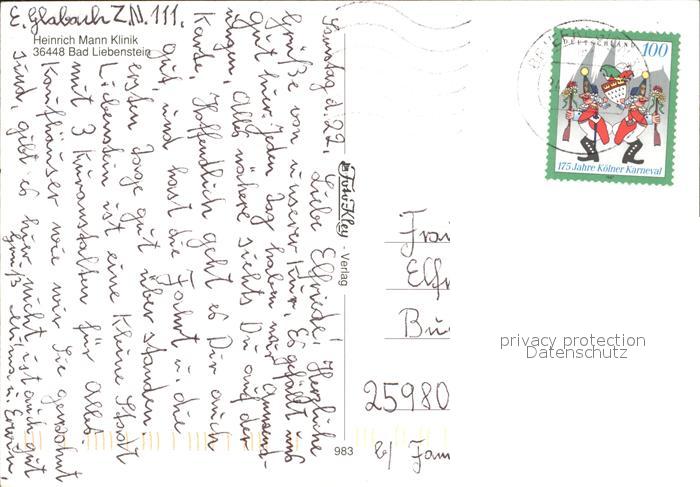 E. Glabach Z.N. 111.
Heinrich Mann Klinik
36448 Bad Liebenstein
Samstag d. 22. Liebe Elfriede! Herzliche
Grüße von unserer Kur. Es gefällt uns
gut hier. Jeden Tag haben wir
ungen. Alles nähere siehts Du auf der
Karte. Hoffentlich geht es Dir auch
gut, und hast die Fahrt u. die
ersten Tage gut über standen.
Liebenstein ist eine kleine Stadt
mit 3 Kuranstalten für Alles.
Kaufhäuser wie wir Sie gewohnt
sind, gibt es hier nicht ist auch gut
Gruß u. Erwin.
Foto Kley · Verlag
983
DEUTSCHLAND 100
175 Jahre Kölner Karneval
Elf
25980
b/ Jam
privacy protection
Datenschutz